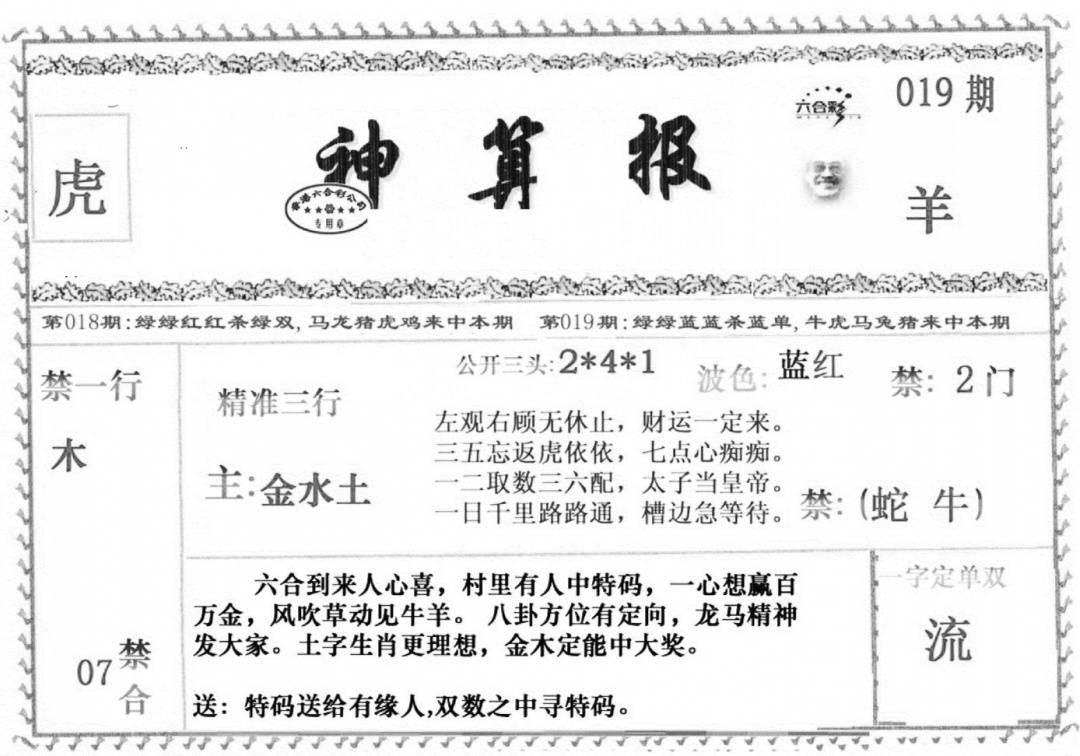 019期
六合彩
虎
神算报
香港六合彩公司
专用章
羊
第018期:绿绿红红杀绿双,马龙猪虎鸡来中本期
第019期:绿绿蓝蓝杀蓝单,牛虎马兔猪来中本期
禁一行
木
07
禁合
精准三行
主:金水土
公开三头:2*4*1
波色:蓝红
禁:2门
左观右顾无休止，财运一定来。
三五忘返虎依依，七点心痴痴。
一二取数三六配，太子当皇帝。
一日千里路路通，槽边急等待。
禁:(蛇 牛)
六合到来人心喜，村里有人中特码，一心想赢百
万金，风吹草动见牛羊。八卦方位有定向，龙马精神
发大家。土字生肖更理想，金木定能中大奖。
送：特码送给有缘人,双数之中寻特码。
一字定单双
流